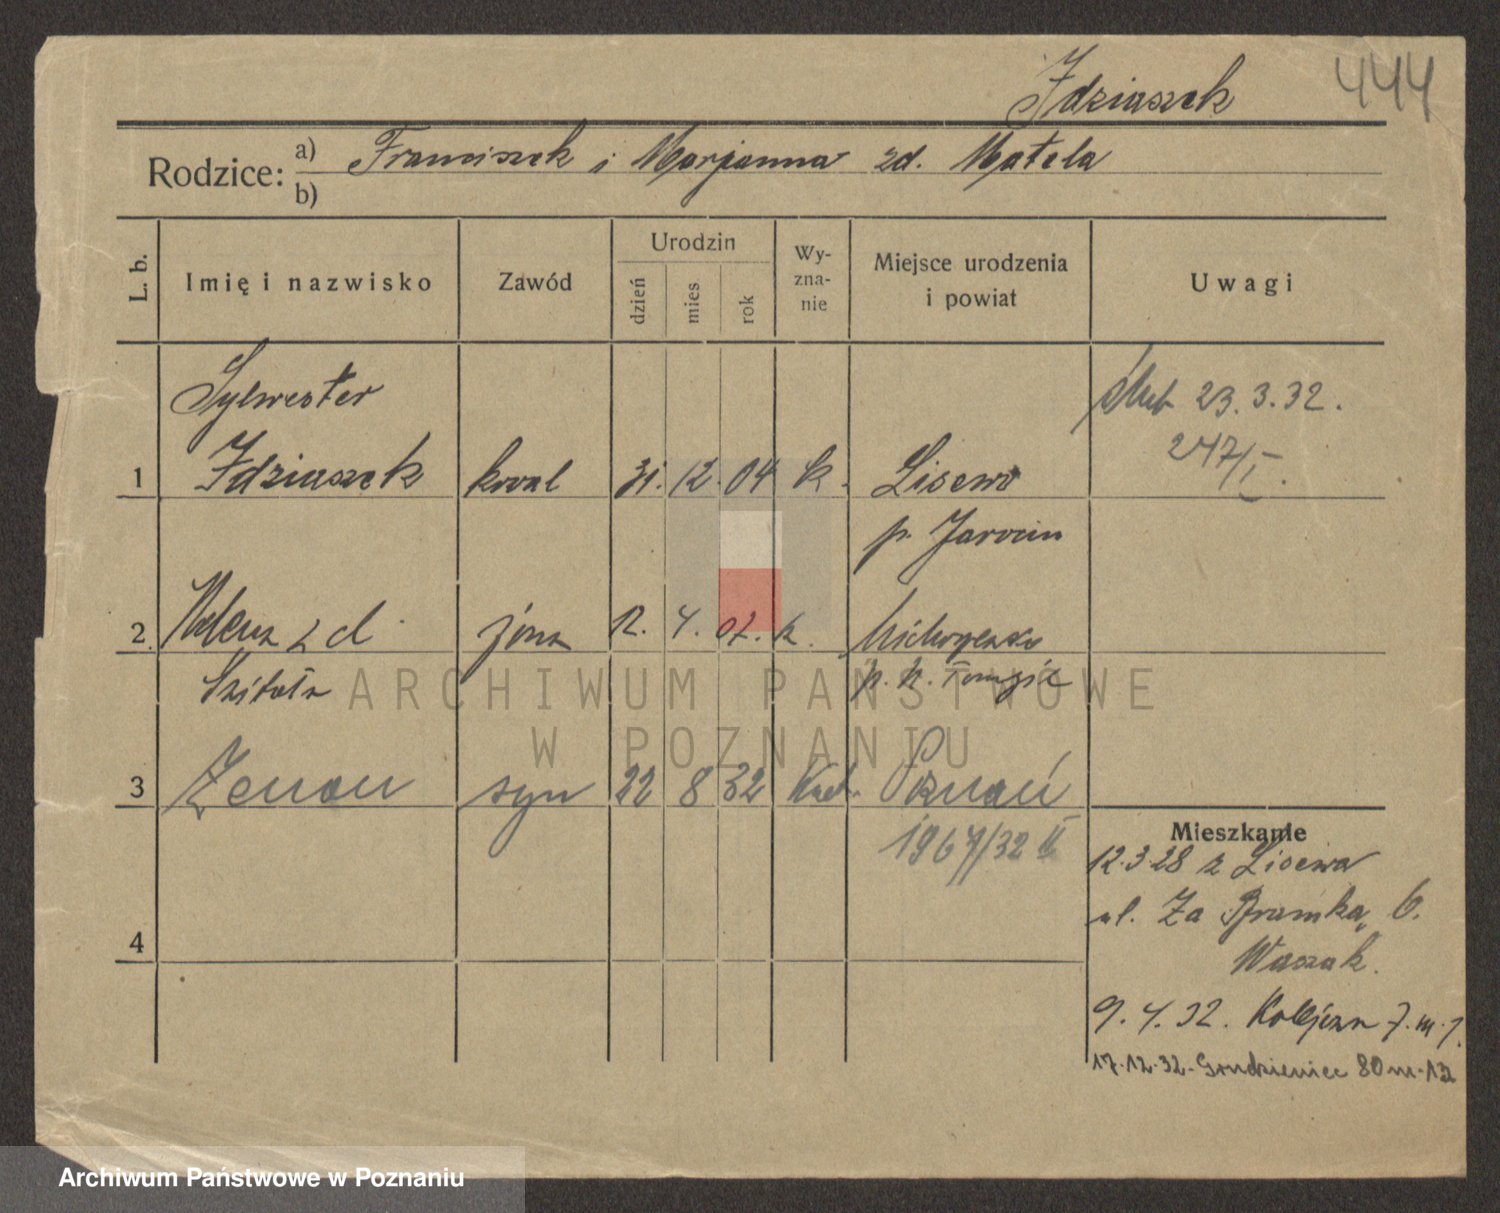 Idziaszek 444
Rodzice: a) Franciszek i Marjanna zd. Matela
b)
L. b. Imię i nazwisko Zawód Urodzin dzień mies rok Wyznanie Miejsce urodzenia i powiat Uwagi
Sylwester ślub 23.3.32.
247/I.
1 Idziaszek kowal 31. 12. 04 k. Lisewo
p. Jarocin
2. zd. żona 12. 4. 07. k.
p. n. Tomyśl
3 Zenon syn 22 8 32 kat. Poznań
1967/32 II
Mieszkanie
12.3.28 z Lisewa
4 ul. Za Bramką 6.
Waszak.
9.4.32. Kolejowa 7. m. 1.
17.12.32 - Grudzieniec 80 m. 13
ARCHIWUM PAŃSTWOWE
W POZNANIU
Archiwum Państwowe w Poznaniu